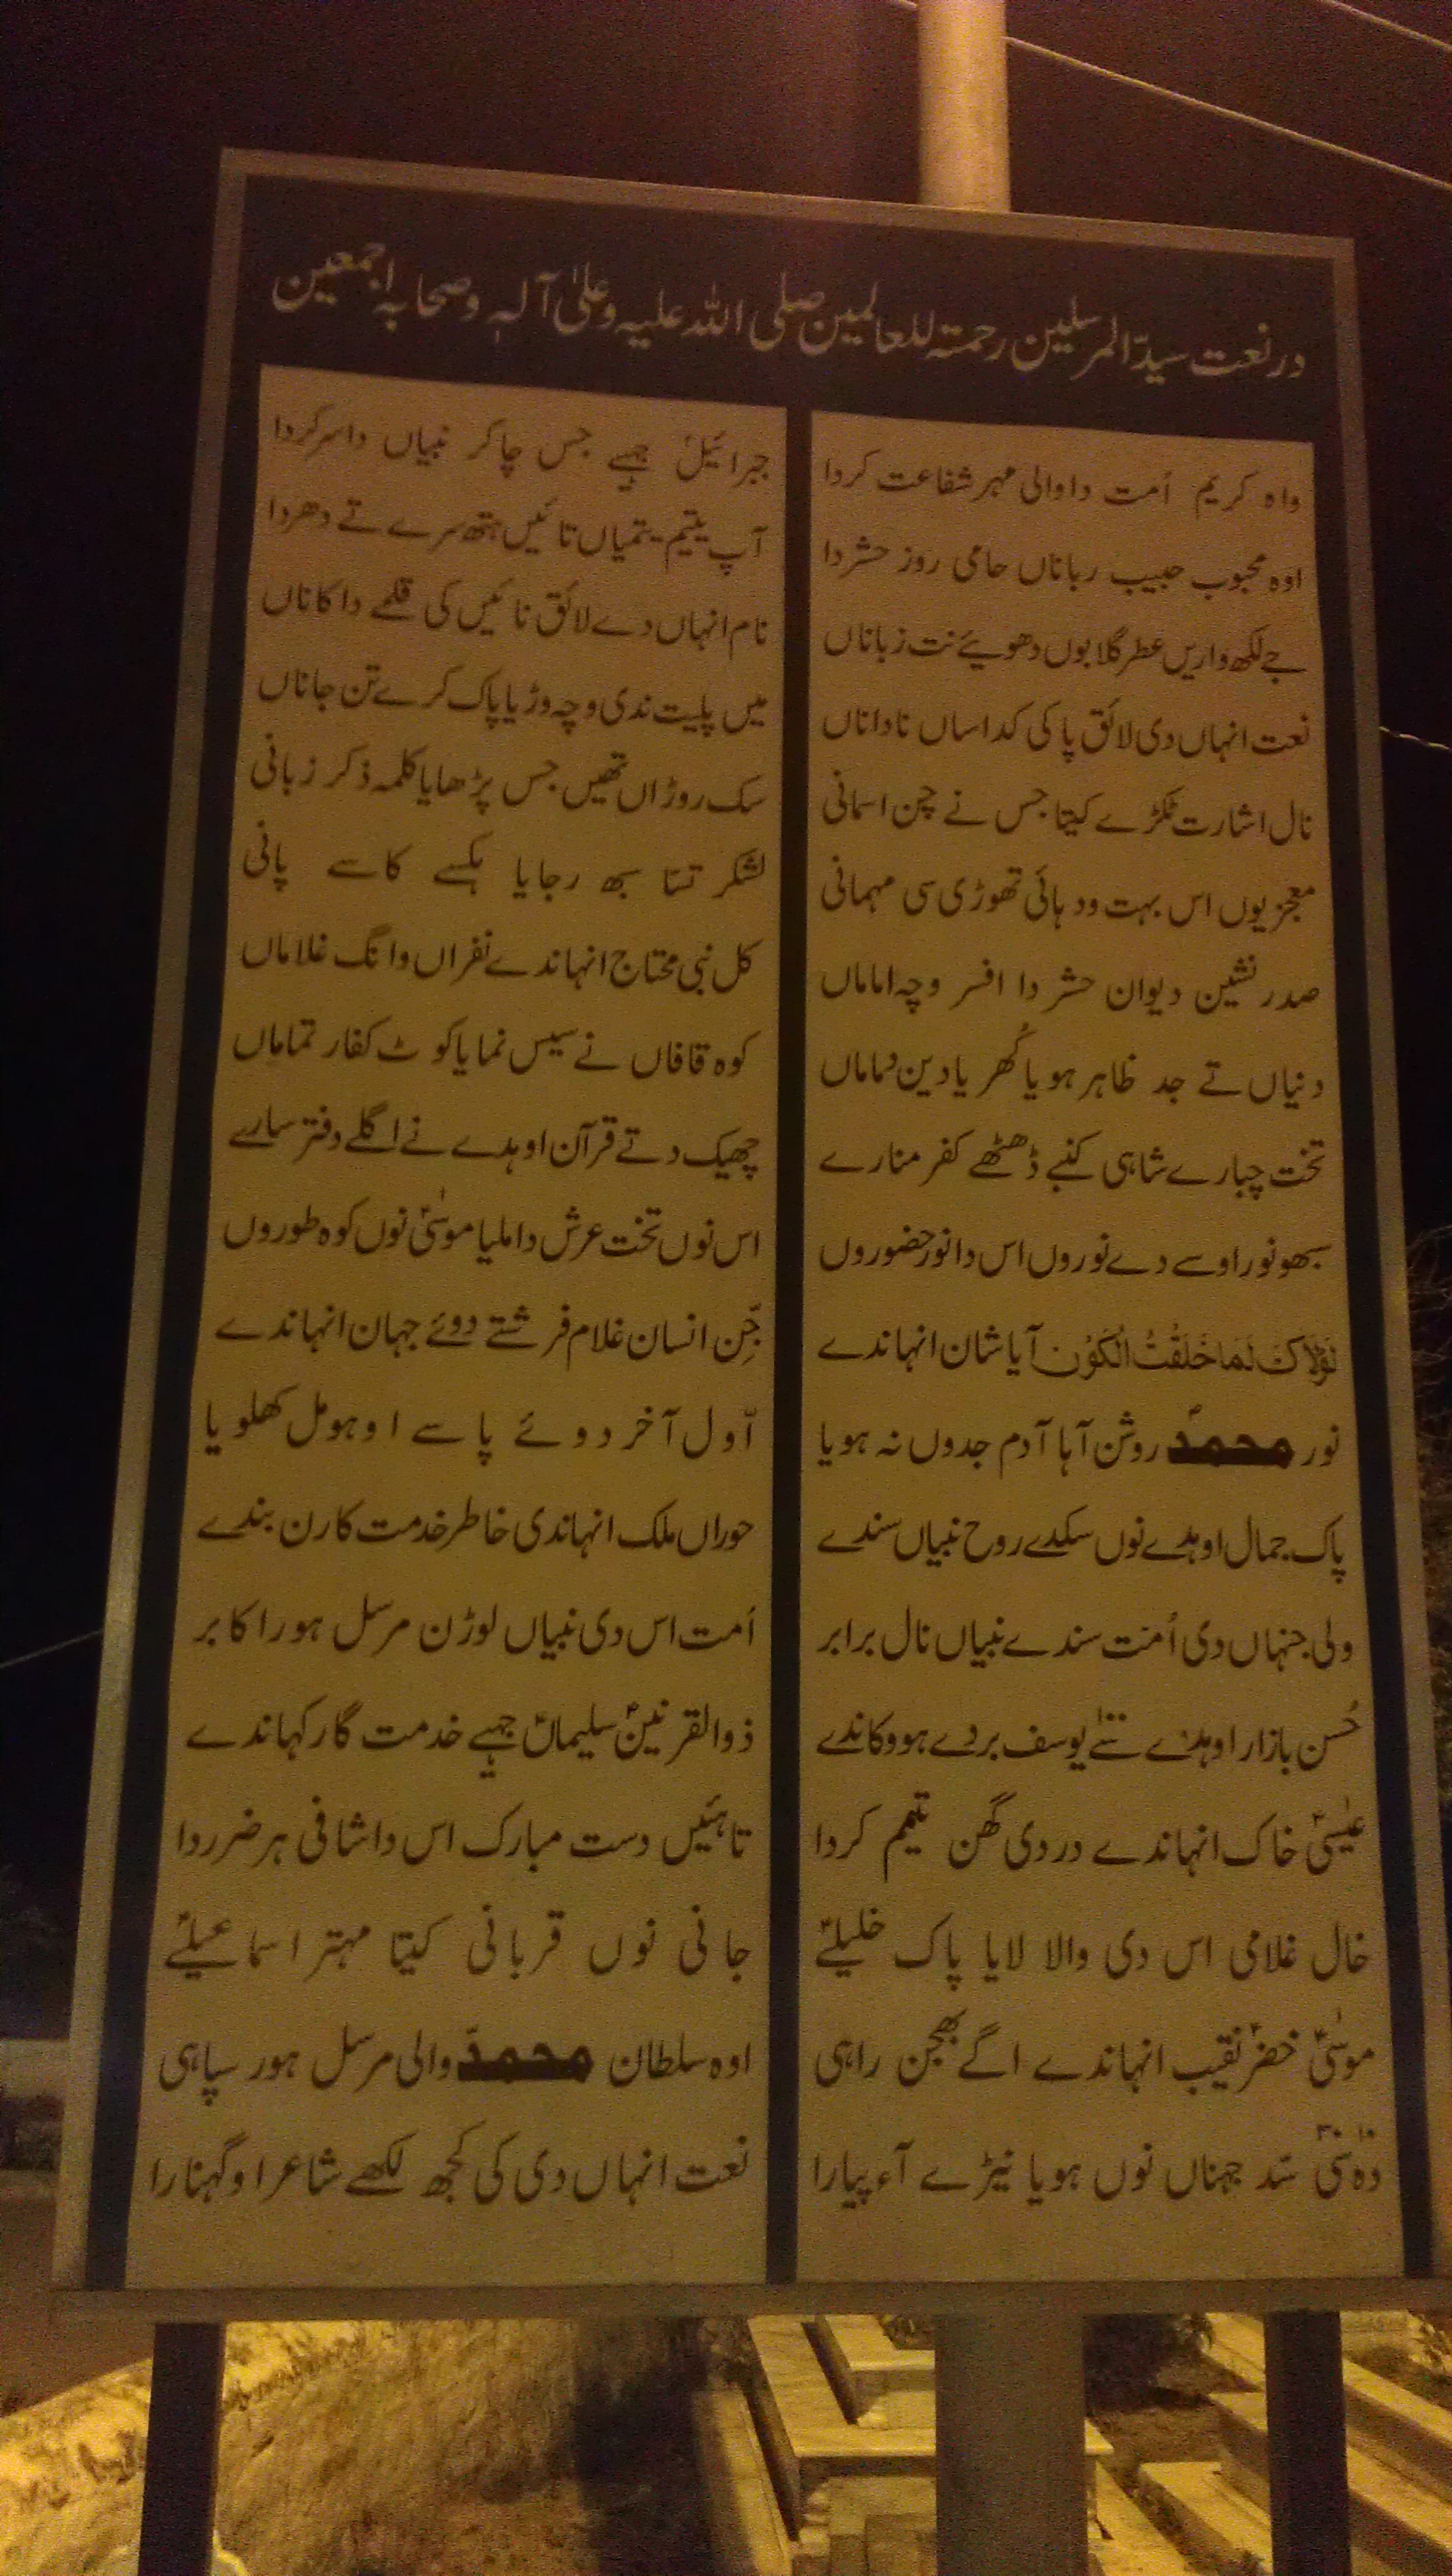 در نعت سیدّ المرسلین رحمتہ للعالمین صلی اللہ علیہ وعلیٰ آلہٖ وصحابہ اجمعین
واہ کریم اُمت دا والی مہر شفاعت کردا
جبرائیلؑ جیہے جس چاکر نبیاں دا سر کردا
اوہ محبوب حبیب ربانا ں حامی روز حشر دا
آپ یتیم یتیمیاں تائیں ہتھ سرے تے دھردا
جے لکھ واریں عطر گلابوں دھوئیے نت زباناں
نام انہاں دے لائق نائیں کی قلمے دا کاناں
نعت انہاں دی لائق پاکی کد اساں ناداناں
میں پلیت ندی وچہ وڑیا پاک کرے تن جاناں
نال اشارت ٹکڑے کیتا جس نے چن اسمانی
سک روڑاں تھیں جس پڑھایا کلمہ ذکر زبانی
معجزیوں اس بہت ودہائی تھوڑی سی مہمانی
لشکر تسا سبھ رجایا ہکسے کاسے پانی
صدر نشین دیوان حشر دا افسر وچہ اماماں
کل نبی محتاج انہاندے نفراں وانگ غلاماں
دنیاں تے جد ظاہر ہویا گھُریا دین دماماں
کوہ قافاں نے سیس نمایا کوٹ کفار تماماں
تخت چبارے شاہی کنبے ڈھٹھے کفر منارے
چھیک دتے قرآن اوہدے نے اگلے دفتر سارے
سبھو نور اوسے دے نوروں اس دا نور حضوروں
اس نوں تخت عرش دا ملیا موسٰیؑ نوں کوہ طوروں
لَوْلَاکَ لَمَا خَلَقْتُ الْکَوْن آیا شان انہاندے
جِنّ انسان غلام فرشتے دوئے جہان انہاندے
نور محمدؐ روشن آہا آدم جدوں نہ ہویا
اّول آخر دوئے پاسے اوہو مل کھلویا
پاک جمال اوہدے نوں سکدے روح نبیاں سندے
حوراں ملک انہاندی خاطر خدمت کارن بندے
ولی جنہاں دی اُمت سندے نبیاں نال برابر
اُمت اس دی نبیاں لوڑن مرسل ہور اکابر
حُسن بازار اوہدے سَتے یوسف بردے ہو وکاندے
ذوالقرنینؑ سلیماںؑ جیہے خدمت گار کہاندے
عیسٰیؑ خاک انہاندے در دی گھن تیمم کردا
تاہئیں دست مبارک اس دا شافی ہر ضرر دا
خال غلامی اس دی والا لایا پاک خلیلےؑ
جانی نوں قربانی کیتا مہتر اسماعیلےؑ
موسٰیؑ خضرؑ نقیب انہاندے اگے بھجن راہی
اوہ سلطان محمدؐ والی مرسل ہور سپاہی
۱۰ ۳۰
دہ سی سَد جہناں نوں ہویا نیڑے آء پیارا
نعت انہاں دی کی کجھ لکھے شاعر اوگنہارا